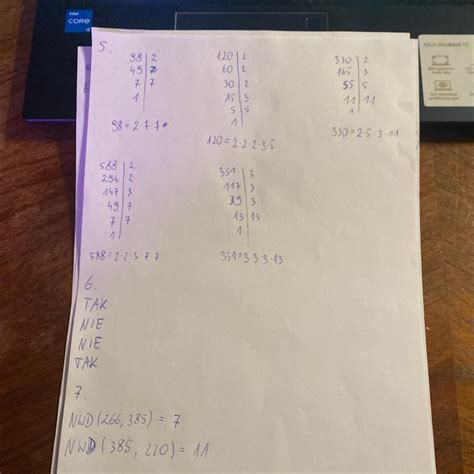 intel
CORE
5.
98 | 2
49 | 7
7 | 7
1
98 = 2·7·7
120 | 2
60 | 2
30 | 2
15 | 3
5 | 5
1
120 = 2·2·2·3·5
330 | 2
165 | 3
55 | 5
11 | 11
1
330 = 2·5·3·11
588 | 2
294 | 2
147 | 3
49 | 7
7 | 7
1
588 = 2·2·3·7·7
351 | 3
117 | 3
39 | 3
13 | 13
1
351 = 3·3·3·13
6.
TAK
NIE
NIE
TAK
7.
NWD (266, 385) = 7
NWD (385, 220) = 11